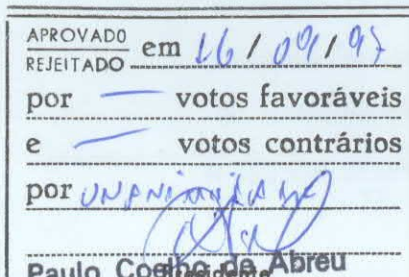 APROVADO
REJEITADO em 16 / 09 / 97
por — votos favoráveis
e — votos contrários
por UNANIMIDADE
Paulo Coelho de Abreu
Presidente